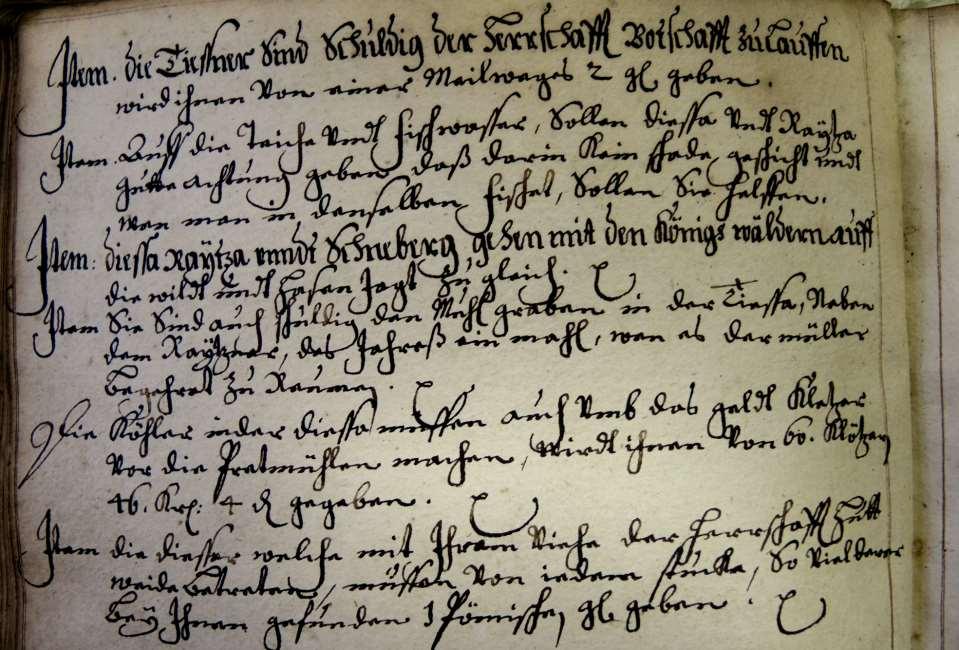 Item. die Tiessner Sind Schuldig der Herrschafft Botschafft zu Lauffen
wird ihnen Von einer Meilweges 2 gl geben.
Item. Auff die Teiche Vndt fischwasser, Sollen diessa Vndt Raÿtza
gutte achtung geben daß darin Kein schade geschicht undt
wen man in denselben fischet, Sollen Sie helffen.
Item: diessa Raÿtza vnndt Schneberg, gehen mit den Königs wäldern auff
die wildt undt hasen Jagt zu gleich.
Item Sie Sind auch schuldig den Mühl graben in der Tiessa, Neben
dem Raÿtzner, des Jahreß ein mahl, wen es der müller
begehret zu Raumen.
Die Köhler in der diessa müssen auch Vmb das geldt Kletzer
Vor die Pretmühlen machen, Wirdt ihnen Von 60. Klötzern
46. Krz: 4 d gegeben.
Item die diesser welche mit Ihrem Viehe der Herrschafft Hutt
weide betreten, müssen Von iedem stucke, So Viel derer
beÿ Ihnen gefunden 1 Römischen gl geben.